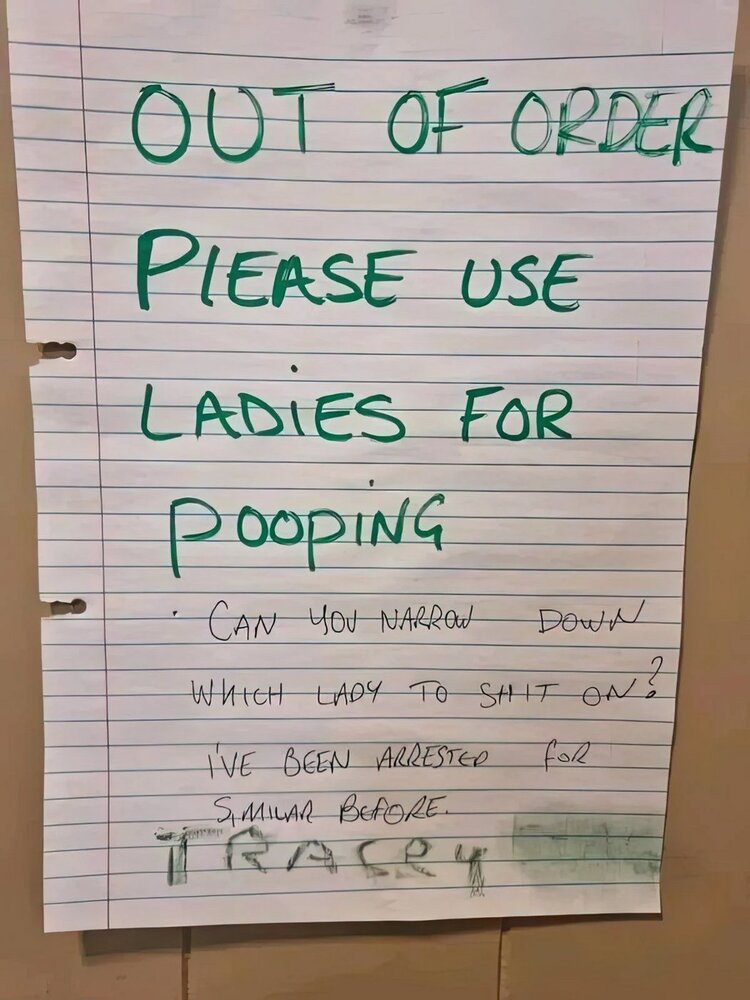 OUT OF ORDER
PLEASE USE
LADiES FOR
POOPiNG
CAN YOU NARROW DOWN
WHICH LADY TO SHIT ON?
I'VE BEEN ARRESTED foR
SiMILAR BEFORE.
TRACEY